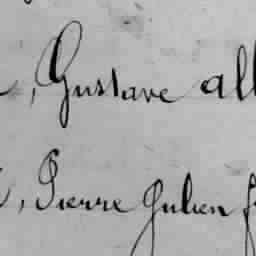 , Gustave all
, Pierre Julien f